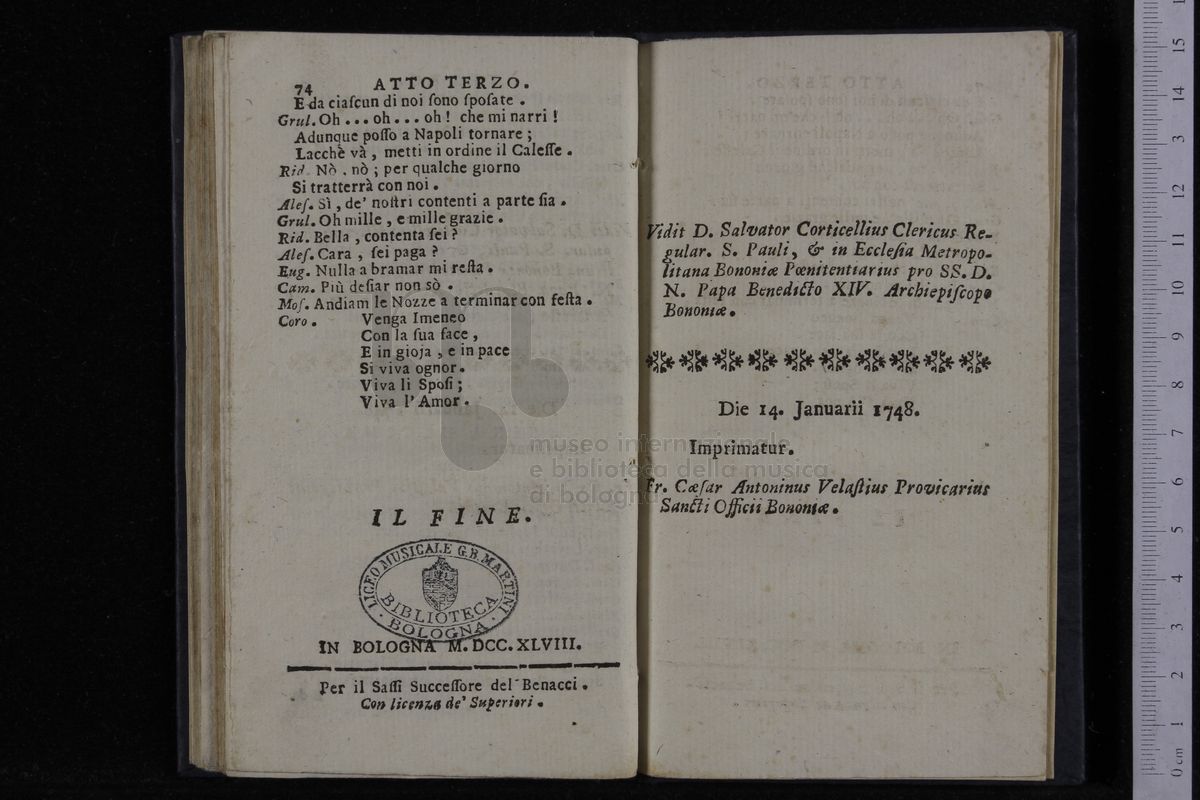 74 ATTO TERZO.
E da ciaſcun di noi ſono ſpoſate .
Grul. Oh ... oh ... oh ! che mi narri !
Adunque poſſo a Napoli tornare ;
Lacchè và , metti in ordine il Caleſſe .
Rid. Nò , nò ; per qualche giorno
Si tratterrà con noi .
Aleſ. Sì , de' noſtri contenti a parte ſia .
Grul. Oh mille , e mille grazie .
Rid. Bella , contenta ſei ?
Aleſ. Cara , ſei paga ?
Eug. Nulla a bramar mi reſta .
Cam. Più deſiar non sò .
Moſ. Andiam le Nozze a terminar con feſta .
Coro . Venga Imeneo
Con la ſua face ,
E in gioja , e in pace
Si viva ognor .
Viva li Spoſi ;
Viva l' Amor .
IL FINE.
LICEO MUSICALE G.B. MARTINI
BIBLIOTECA
· BOLOGNA ·
IN BOLOGNA M. DCC. XLVIII.
Per il Saſſi Succeſſore del Benacci .
Con licenza de' Superiori .
Vidit D. Salvator Corticellius Clericus Re-
gular. S. Pauli, & in Eccleſia Metropo-
litana Bononiæ Pœnitentiarius pro SS. D.
N. Papa Benedicto XIV. Archiepiſcopo
Bononiæ .
Die 14. Januarii 1748.
Imprimatur.
Fr. Cæſar Antoninus Velaſtius Provicarius
Sancti Officii Bononiæ .
museo internazionale
e biblioteca della musica
di bologna
0 cm 1 2 3 4 5 6 7 8 9 10 11 12 13 14 15